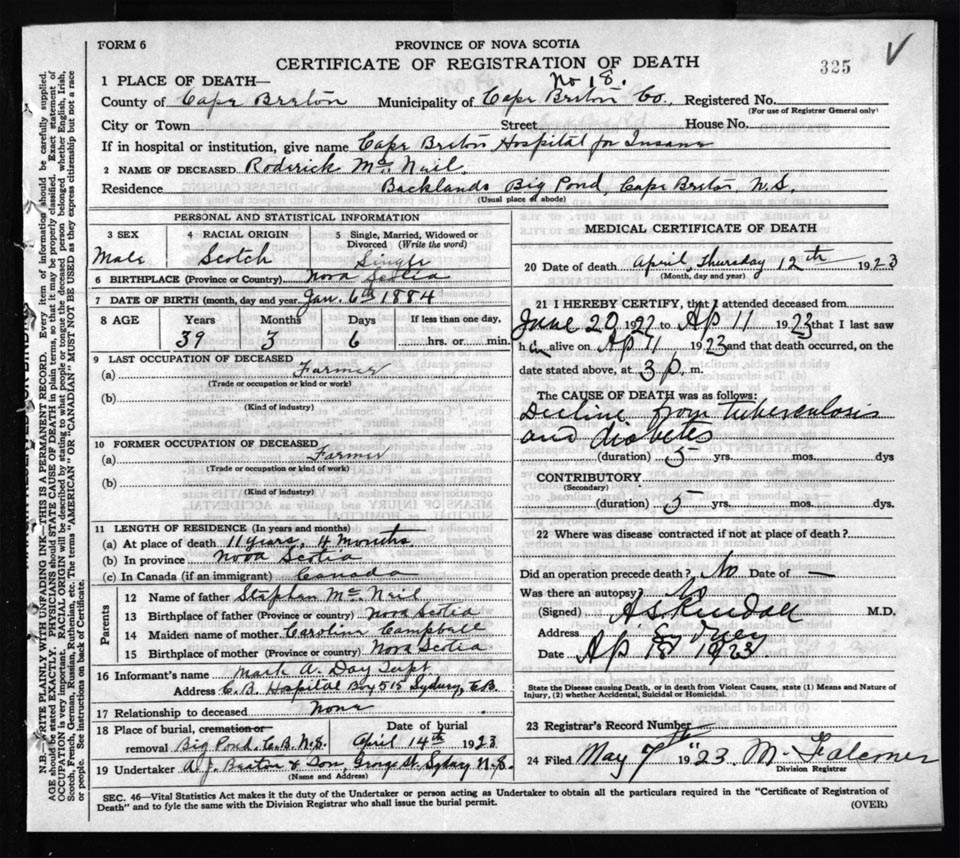 FORM 6
PROVINCE OF NOVA SCOTIA
CERTIFICATE OF REGISTRATION OF DEATH
325
No 18.
1 PLACE OF DEATH—
County of Cape Breton Municipality of Cape Breton Co., Registered No.
(For use of Registrar General only)
City or Town Street House No.
If in hospital or institution, give name Cape Breton Hospital for Insane
2 NAME OF DECEASED Roderick Mc Neil.
Residence Backlands Big Pond, Cape Breton, N.S.
(Usual place of abode)
PERSONAL AND STATISTICAL INFORMATION
3 SEX 4 RACIAL ORIGIN 5 Single, Married, Widowed or Divorced (Write the word)
Male Scotch Single
6 BIRTHPLACE (Province or Country) Nova Scotia
7 DATE OF BIRTH (month, day and year) Jan. 6th 1884
8 AGE Years Months Days If less than one day,
39 3 6 hrs. or min.
9 LAST OCCUPATION OF DECEASED
(a) Farmer
(Trade or occupation or kind or work)
(b)
(Kind of industry)
10 FORMER OCCUPATION OF DECEASED
(a) Farmer
(Trade or occupation or kind of work)
(b)
(Kind of industry)
11 LENGTH OF RESIDENCE (In years and months)
(a) At place of death 11 years, 4 months
(b) In province Nova Scotia
(c) In Canada (if an immigrant) Canada
Parents
12 Name of father Stephen Mc Neil
13 Birthplace of father (Province or Country) Nova Scotia
14 Maiden name of mother Caroline Campbell
15 Birthplace of mother (Province or country) Nova Scotia
16 Informant's name Mark A. Day Supt
Address C.B. Hospital Box 515 Sydney, C.B.
17 Relationship to deceased None
18 Place of burial, cremation or removal Big Pond, C.B. N.S. Date of burial April 14th 1923
19 Undertaker A. J. Beaton & Son, George St, Sydney N.S.
(Name and Address)
MEDICAL CERTIFICATE OF DEATH
20 Date of death April, Thursday 12th 1923
(Month, day and year)
21 I HEREBY CERTIFY, that I attended deceased from
June 20 1922 to Ap 11 1923 that I last saw
him alive on Ap 11 1923 and that death occurred, on the
date stated above, at 3 p. m.
The CAUSE OF DEATH was as follows:
Decline from Tuberculosis
and diabetes
(duration) 5 yrs. mos. dys
CONTRIBUTORY
(Secondary)
(duration) 5 yrs. mos. dys.
22 Where was disease contracted if not at place of death?
Did an operation precede death? No Date of —
Was there an autopsy?
(Signed) A. S. Kendall M.D.
Address Sydney
Date Ap 18 1923
State the Disease causing Death, or in death from Violent Causes, state (1) Means and Nature of
Injury, (2) whether Accidental, Suicidal or Homicidal.
23 Registrar's Record Number
24 Filed May 7th 1923. M. Falconer
Division Registrar
SEC. 46—Vital Statistics Act makes it the duty of the Undertaker or person acting as Undertaker to obtain all the particulars required in the "Certificate of Registration of
Death" and to fyle the same with the Division Registrar who shall issue the burial permit.
(OVER)
N.B.—WRITE PLAINLY WITH UNFADING INK—THIS IS A PERMANENT RECORD. Every item of information should be carefully supplied.
AGE should be stated EXACTLY. PHYSICIANS should STATE CAUSE OF DEATH in plain terms, so that it may be properly classified. Exact statement of
OCCUPATION is very important. RACIAL ORIGIN will be described by stating to what people or tongue the deceased person belonged whether English, Irish,
Scotch, French, German, Russian, Ruthenian, etc. The terms "AMERICAN" OR "CANADIAN" MUST NOT BE USED as they express citizenship but not a race
or people. See instructions on back of Certificate.